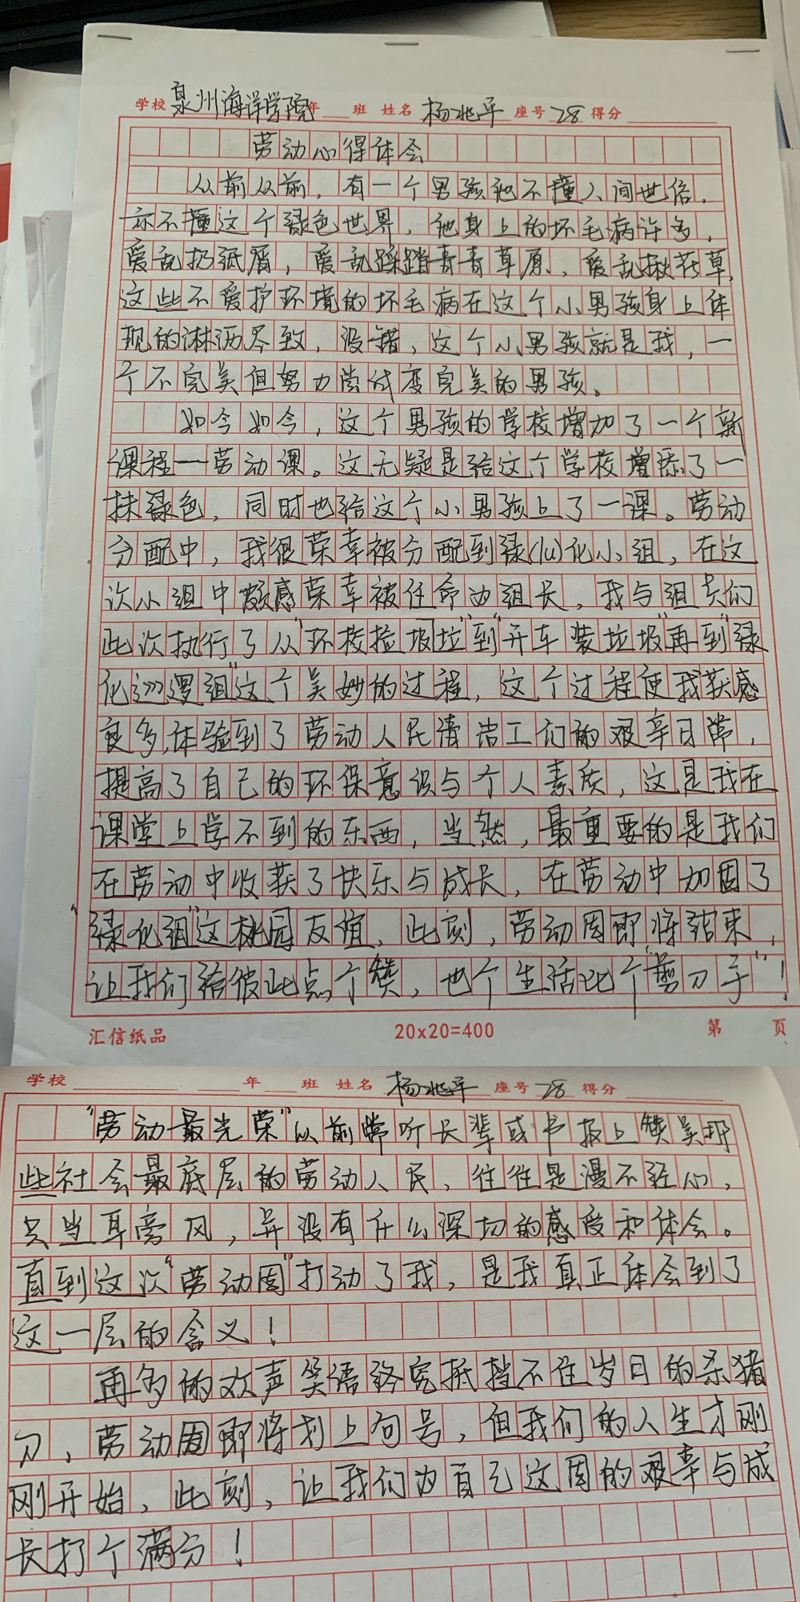 学校 泉州海洋学院 年 班 姓名 杨兆平 座号 28 得分
劳动心得体会
从前从前，有一个男孩他不懂人间世俗，
亦不懂这个绿色世界，他身上的坏毛病许多，
爱乱扔纸屑，爱乱蹂踏青青草原，爱乱揪花草，
这些不爱护环境的坏毛病在这个小男孩身上体
现的淋漓尽致，没错，这个小男孩就是我，一
个不完美但努力尝试变完美的男孩。
如今如今，这个男孩的学校增加了一个新
课程——劳动课。这无疑是给这个学校增添了一
抹绿色，同时也给这个小男孩上了一课。劳动
分配中，我很荣幸被分配到绿(lu)化小组，在这
次小组中颇感荣幸被任命为组长，我与组员们
此次执行了从"环校捡垃圾"到"开车装垃圾"再到"绿
化巡逻组"这个美妙的过程，这个过程使我获感
良多，体验到了劳动人民清洁工们的艰辛日常，
提高了自己的环保意识与个人素质，这是我在
课堂上学不到的东西，当然，最重要的是我们
在劳动中收获了快乐与成长，在劳动中加固了
"绿化组"这桃园友谊，此刻，劳动周即将结束，
让我们给彼此点个赞，也个生活比个"剪刀手"！
汇信纸品 20x20=400 第 页
学校 年 班 姓名 杨兆平 座号 28 得分
"劳动最光荣"从前常听长辈或书报上赞美那
些社会最底层的劳动人民，往往是漫不经心，
只当耳旁风，并没有什么深切的感受和体会。
直到这次"劳动周"打动了我，是我真正体会到了
这一层的含义！
再多的欢声笑语终究抵挡不住岁月的杀猪
刀，劳动周即将划上句号，但我们的人生才刚
刚开始，此刻，让我们为自己这周的艰辛与成
长打个满分！